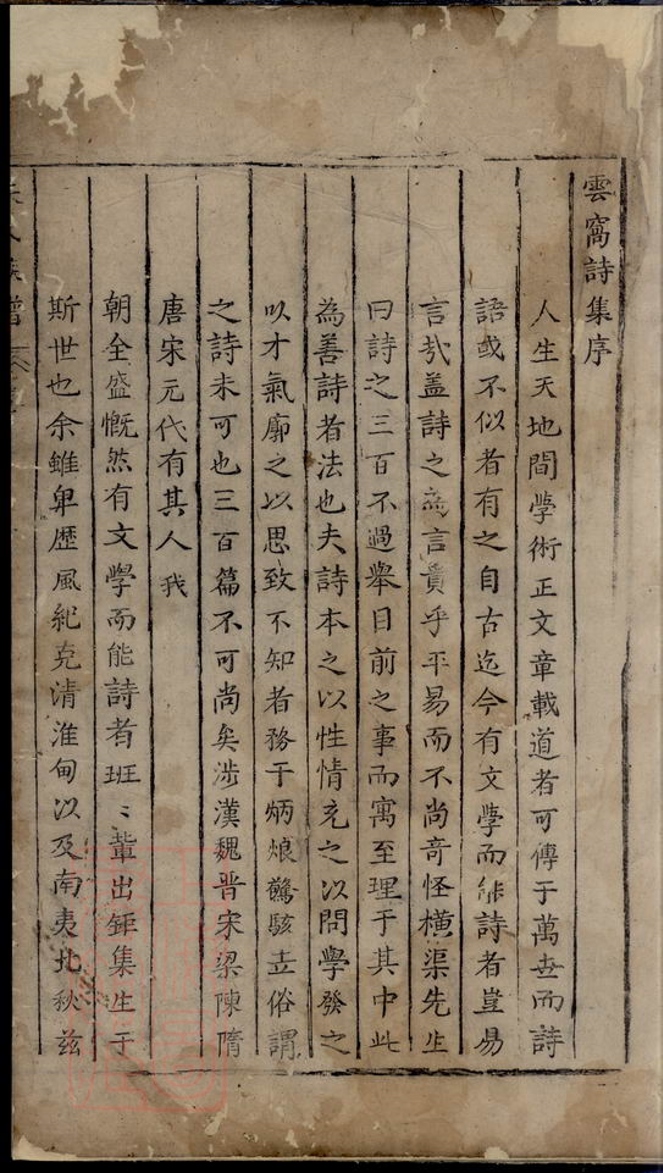 雲窩詩集序
人生天地間學術正文章載道者可傳于萬世而詩
語或不似者有之自古迄今有文學而能詩者豈易
言哉盖詩之為言貴乎平易而不尚奇怪橫渠先生
曰詩之三百不過舉目前之事而寓至理于其中此
為善詩者法也夫詩本之以性情充之以問學發之
以才氣廓之以思致不知者務于炳烺驚駭世俗謂
之詩未可也三百篇不可尚矣涉漢魏晋宋梁陳隋
唐宋元代有其人我
朝全盛慨然有文學而能詩者班〻軰出鉅集生于
斯世也余雖卑歷風紀克清淮甸以及南夷北秋茲